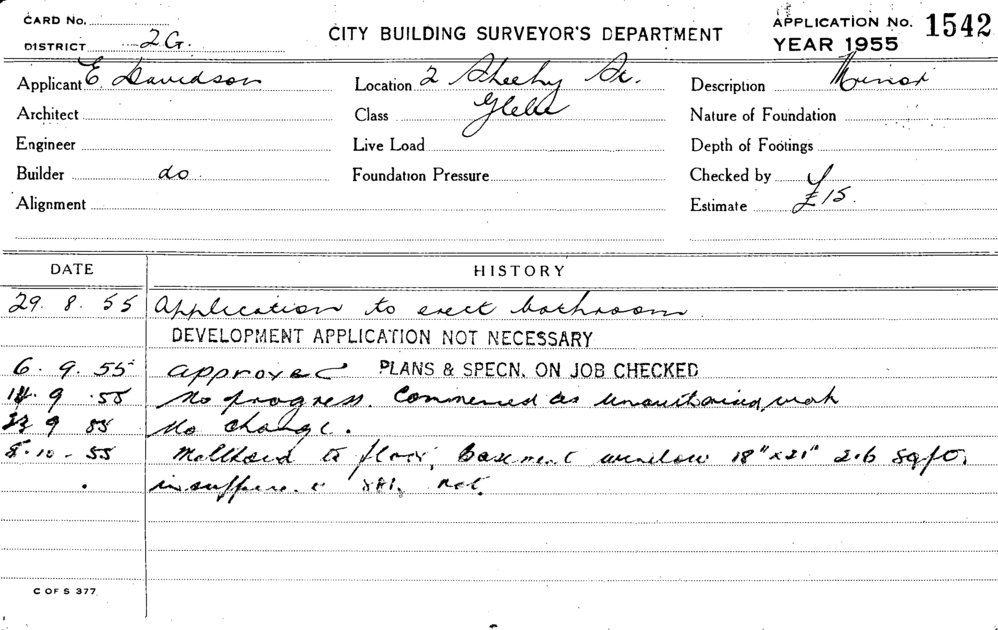 CARD No.
DISTRICT 2G.
CITY BUILDING SURVEYOR'S DEPARTMENT
APPLICATION No. 1542
YEAR 1955
Applicant E. Davidson Location 2 Sheehy St. Description Minor
Architect Class Glebe Nature of Foundation
Engineer Live Load Depth of Footings
Builder do. Foundation Pressure Checked by
Alignment Estimate £15.
DATE HISTORY
29. 8. 55 Application to erect bathroom.
DEVELOPMENT APPLICATION NOT NECESSARY
6. 9. 55 approved PLANS & SPECN. ON JOB CHECKED
14. 9. 55 No progress. Commenced as work
9 55 No change.
5. 10 - 55 to floor, Basement window 18" x 21" 2.6 sq ft.
C OF S 377